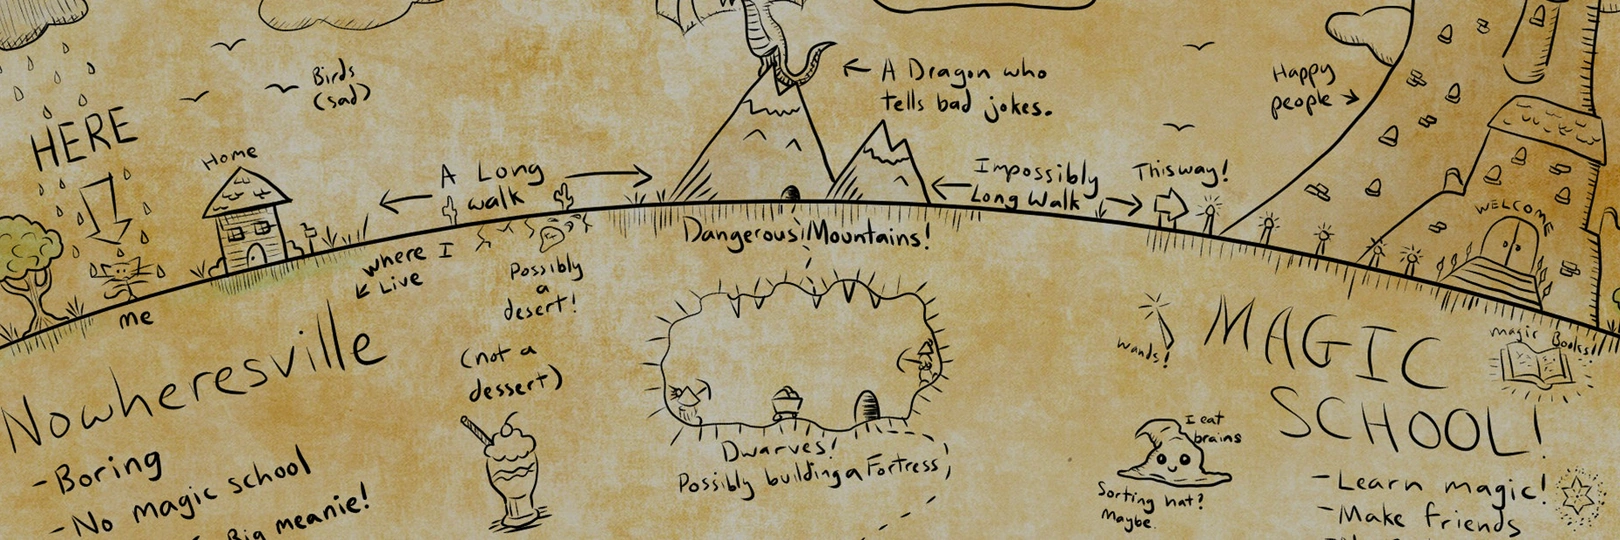 HERE
Birds
(sad)
Home
me
A Long
walk
where I
Live
Nowheresville
-Boring
-No magic school
Big meanie!
Possibly
a
desert!
(not a
dessert)
A Dragon who
tells bad jokes.
Dangerous Mountains!
Dwarves!
Possibly building a Fortress
Impossibly
Long Walk
This way!
Happy
people
WELCOME
wands!
MAGIC
SCHOOL!
magic Books!
I eat
brains
Sorting hat?
Maybe.
-Learn magic!
-Make friends